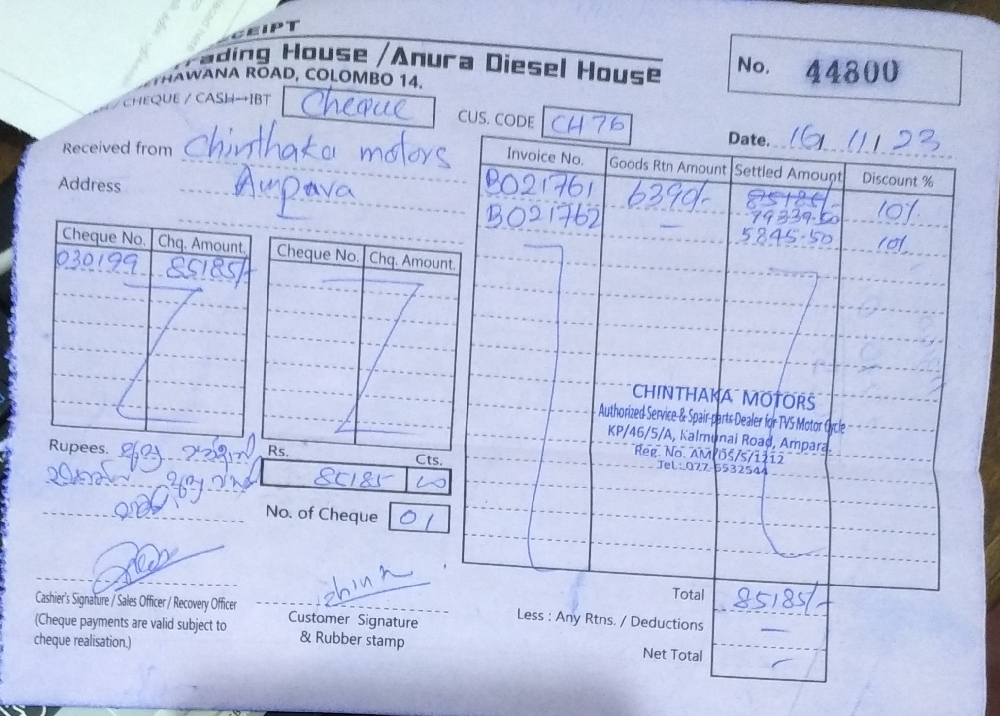 CEIPT
rading House /Anura Diesel House
THAWANA ROAD, COLOMBO 14.
/ CHEQUE / CASH→IBT Cheque
CUS. CODE CH76
No. 44800
Date. 16/ 11/ 23
Received from Chinthaka motors
Address Ampara
Invoice No. Goods Rtn Amount Settled Amount Discount %
B021761 6390/- 85185/- 10%
79339.50
B021762 – 5845.50 10%
Cheque No. Chq. Amount.
030199 85185/-
Cheque No. Chq. Amount.
CHINTHAKA MOTORS
Authorized Service & Spair-parts Dealer for TVS Motor Cycle
KP/46/5/A, Kalmunai Road, Ampara.
Reg. No. AM/DS/5/1212
Tel : 077-5532544
Rupees.
Rs. Cts.
85185 00
No. of Cheque 01
Cashier's Signature / Sales Officer / Recovery Officer
(Cheque payments are valid subject to
cheque realisation.)
Customer Signature
& Rubber stamp
Total 85185/-
Less : Any Rtns. / Deductions –
Net Total